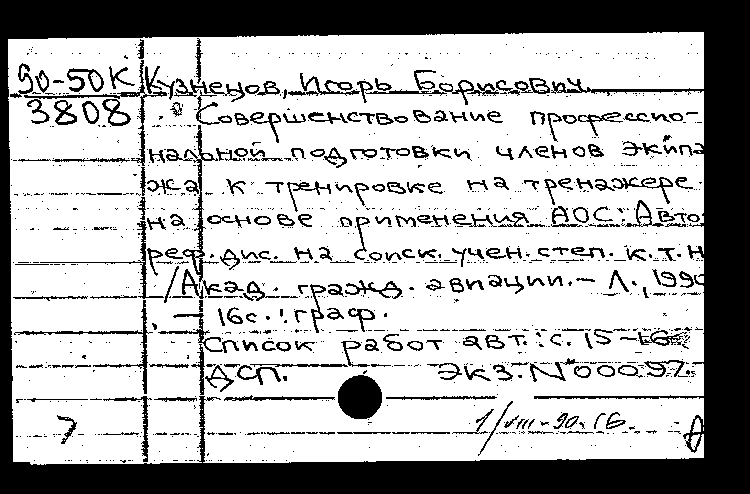 90-50К Кузнецов, Игорь Борисович.
3808 Совершенствование профессио-
нальной подготовки членов экипа
жа к тренировке на тренажере
на основе применения АОС: Авто-
реф. дис. на соиск. учен. степ. к.т.н
/Акад. гражд. авиации. – Л., 1990
– 16с.: граф.
Список работ авт.: с. 15–16
ДСП. Экз. N°00097.
7 1/VIII-90.